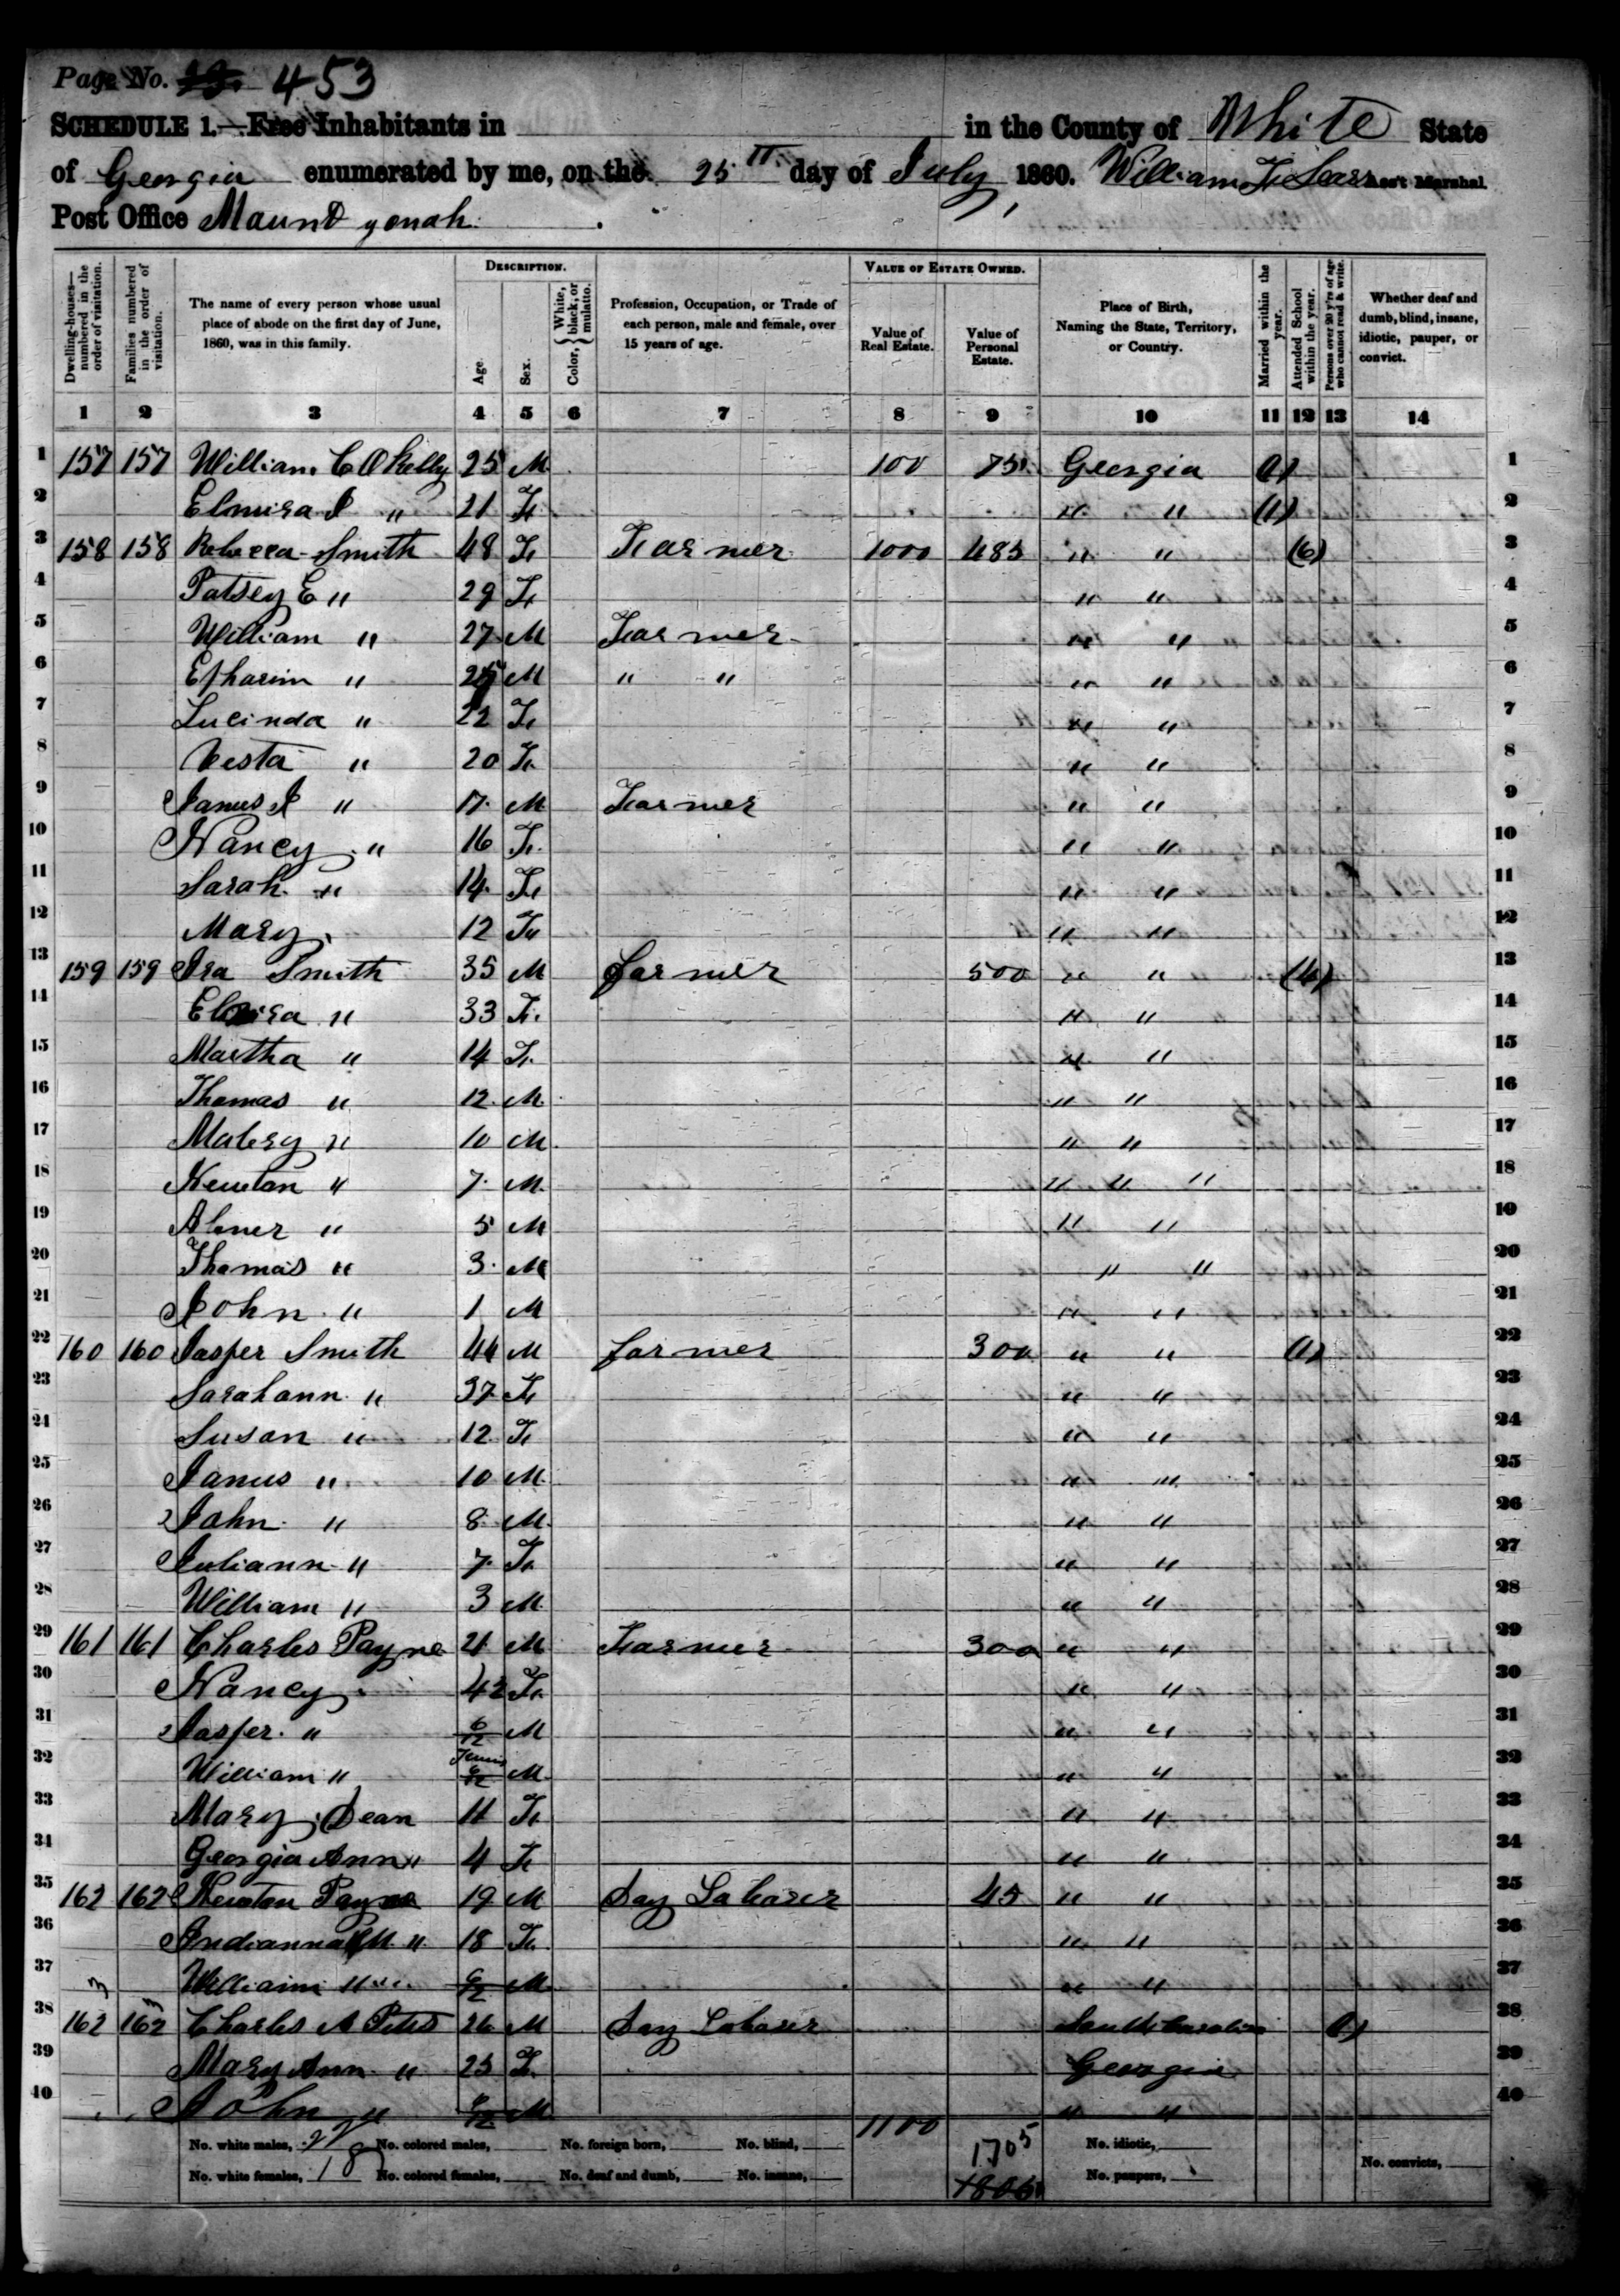 Page No. 23. 453
SCHEDULE 1.—Free Inhabitants in in the County of White State
of Georgia enumerated by me, on the 25th day of July, 1860. William F. Sears Ass't Marshal.
Post Office Maund yonah.
Dwelling-houses—numbered in the order of visitation. Families numbered in the order of visitation. The name of every person whose usual place of abode on the first day of June, 1860, was in this family. DESCRIPTION. Age. Sex. Color, { White, black, or mulatto. Profession, Occupation, or Trade of each person, male and female, over 15 years of age. VALUE OF ESTATE OWNED. Value of Real Estate. Value of Personal Estate. Place of Birth, Naming the State, Territory, or Country. Married within the year. Attended School within the year. Persons over 20 y'rs of age who cannot read & write. Whether deaf and dumb, blind, insane, idiotic, pauper, or convict.
1 2 3 4 5 6 7 8 9 10 11 12 13 14
1 157 157 William C O Kelly 25 M 100 75 Georgia (1) 1
2 Elmira J " 21 F " " (1) 2
3 158 158 Rebecca Smith 48 F Farmer 1000 485 " " (6) 3
4 Patsey E " 29 F " " 4
5 William " 27 M Farmer " " 5
6 Epharim " 25 M " " " " 6
7 Lucinda " 22 F " " 7
8 Vesta " 20 F " " 8
9 James J " 17 M Farmer " " 9
10 Nancy " 16 F " " 10
11 Sarah " 14 F " " 11
12 Mary 12 F " " 12
13 159 159 Ira Smith 35 M farmer 500 " " (4) 13
14 33 F " " 14
15 Martha " 14 F " " 15
16 Thomas " 12 M " " 16
17 " 10 M " " 17
18 Newton " 7 M " " " 18
19 Abner " 5 M " " 19
20 Thomas " 3 M " " 20
21 John " 1 M " " 21
22 160 160 Jasper Smith 44 M farmer 300 " " (1) 22
23 Sarahann " 37 F " " 23
24 Susan " 12 F " " 24
25 James " 10 M " " 25
26 John " 8 M " " 26
27 Juliann " 7 F " " 27
28 William " 3 M " " 28
29 161 161 Charles Payne 21 M Farmer 300 " " 29
30 Nancy 42 F " " 30
31 Jasper " 6/12 M " " 31
32 William " 6/12 M " " 32
33 Mary Dean 11 F " " 33
34 Georgia Ann " 4 F " " 34
35 162 162 Newton Payne 19 M Day Laborer 45 " " 35
36 Indianna M " 18 F " " 36
37 William " M " " 37
38 162 3 162 3 Charles A Petes 26 M Day Laborer South Carolina (1) 38
39 Mary Ann " 25 F Georgia 39
40 John " M " " 40
No. white males, 22 No. colored males, No. foreign born, No. blind, 1100 1705 No. idiotic,
No. white females, 18 No. colored females, No. deaf and dumb, No. insane, 1806 No. paupers, No. convicts,